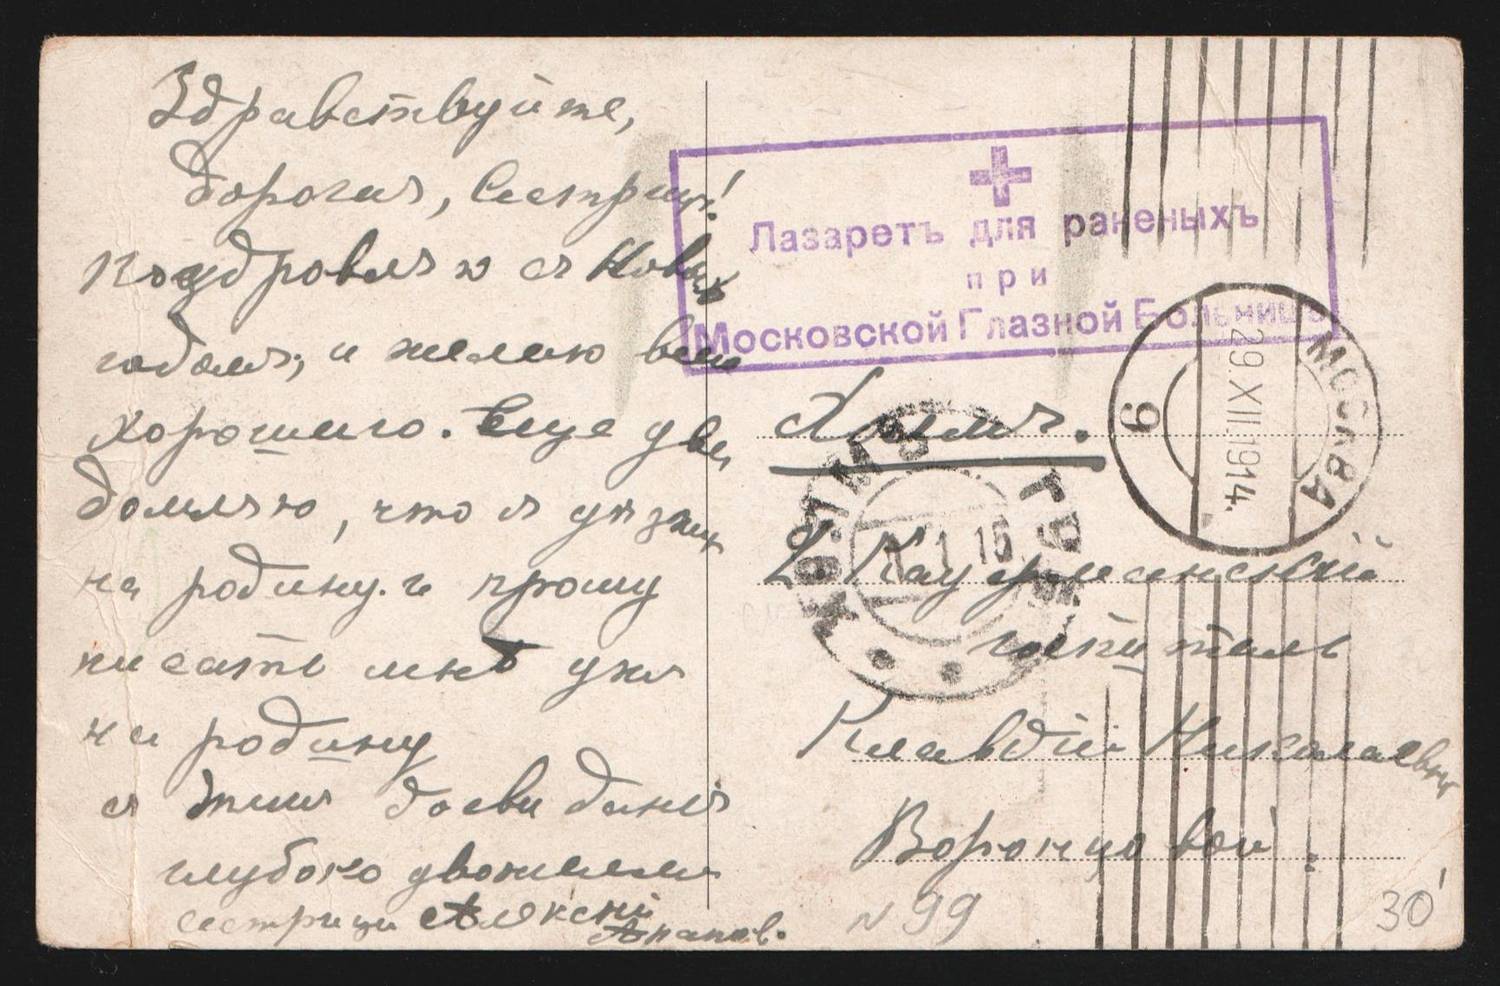 Здравствуйте,
дорогая, Сестрица!
Поздровляю съ Новымъ
годомъ, и желаю всего
хорошего. Еще уве
домляю, что я уезжаю
на родину. и прошу
писать мнѣ уже
на родину
съ этим досвидания
глубоко уважаемая
сестрица Аляксей
Арапов.
Лазаретъ для раненыхъ
при
Московской Глазной Больницѣ
МОСКВА
29.XII.1914.
9
Холмъ.
ХОЛМЪ ГУБ.
1.1.15
2 Кауфманский
госпиталь
Клавдiи Николаевне
Воронцовой.
N 99
30